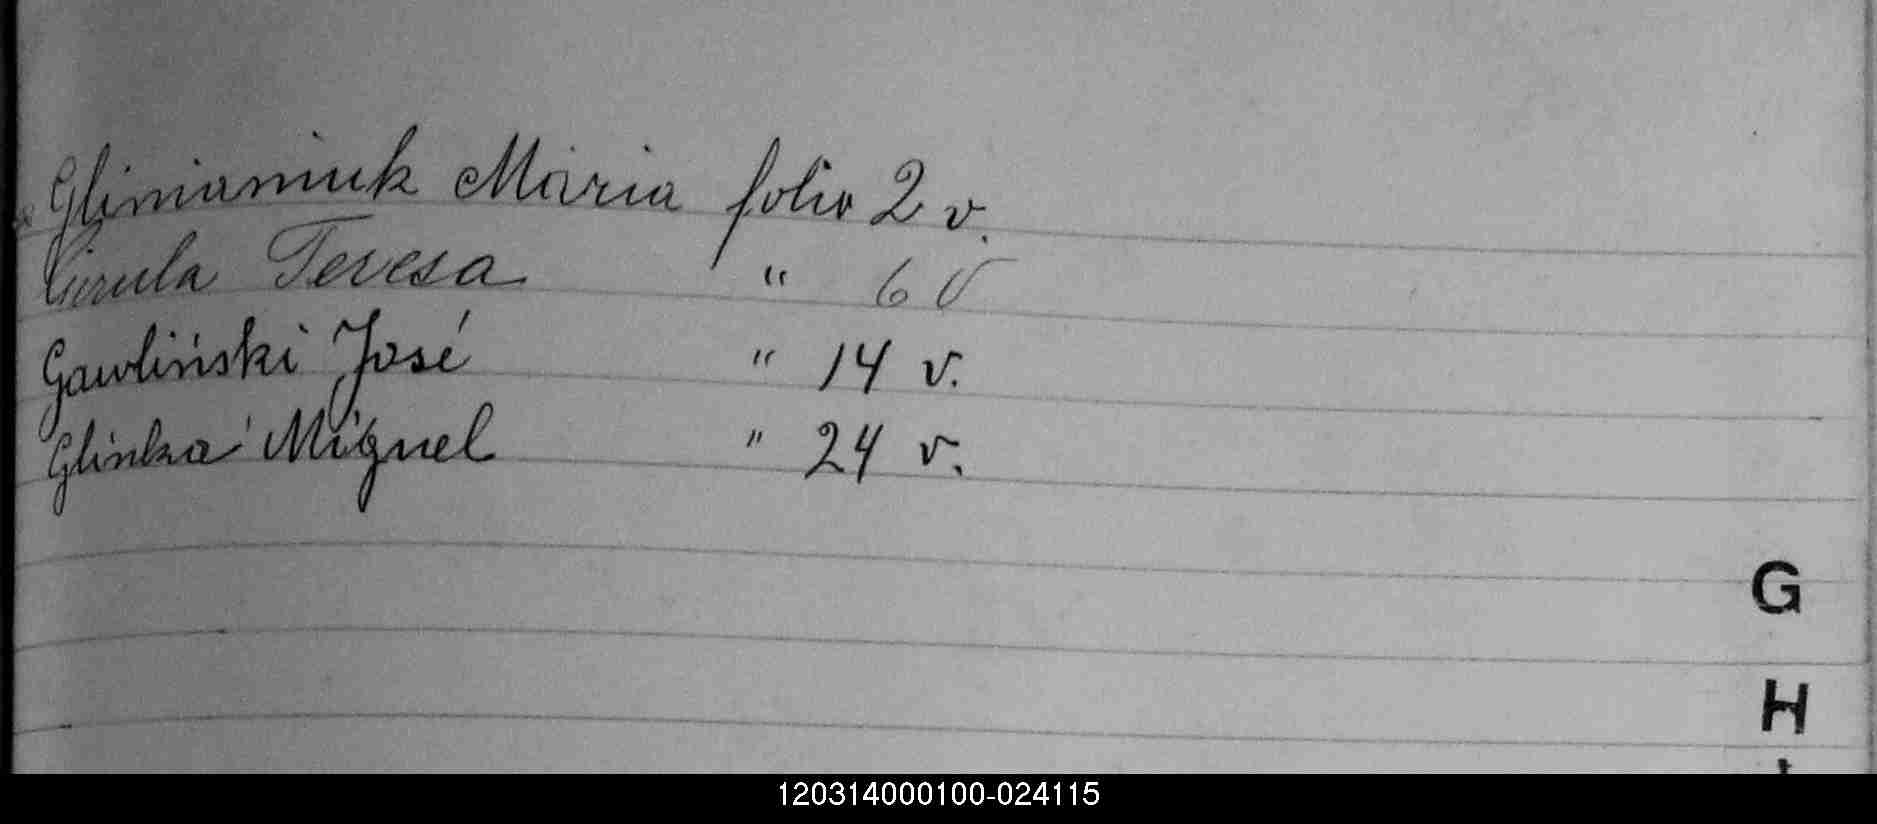 Glinianiuk Maria folio 2 v.
Girula Teresa " 6 V
Gawliński José " 14 v.
Glinka Miguel " 24 v.
G
H
120314000100-024115